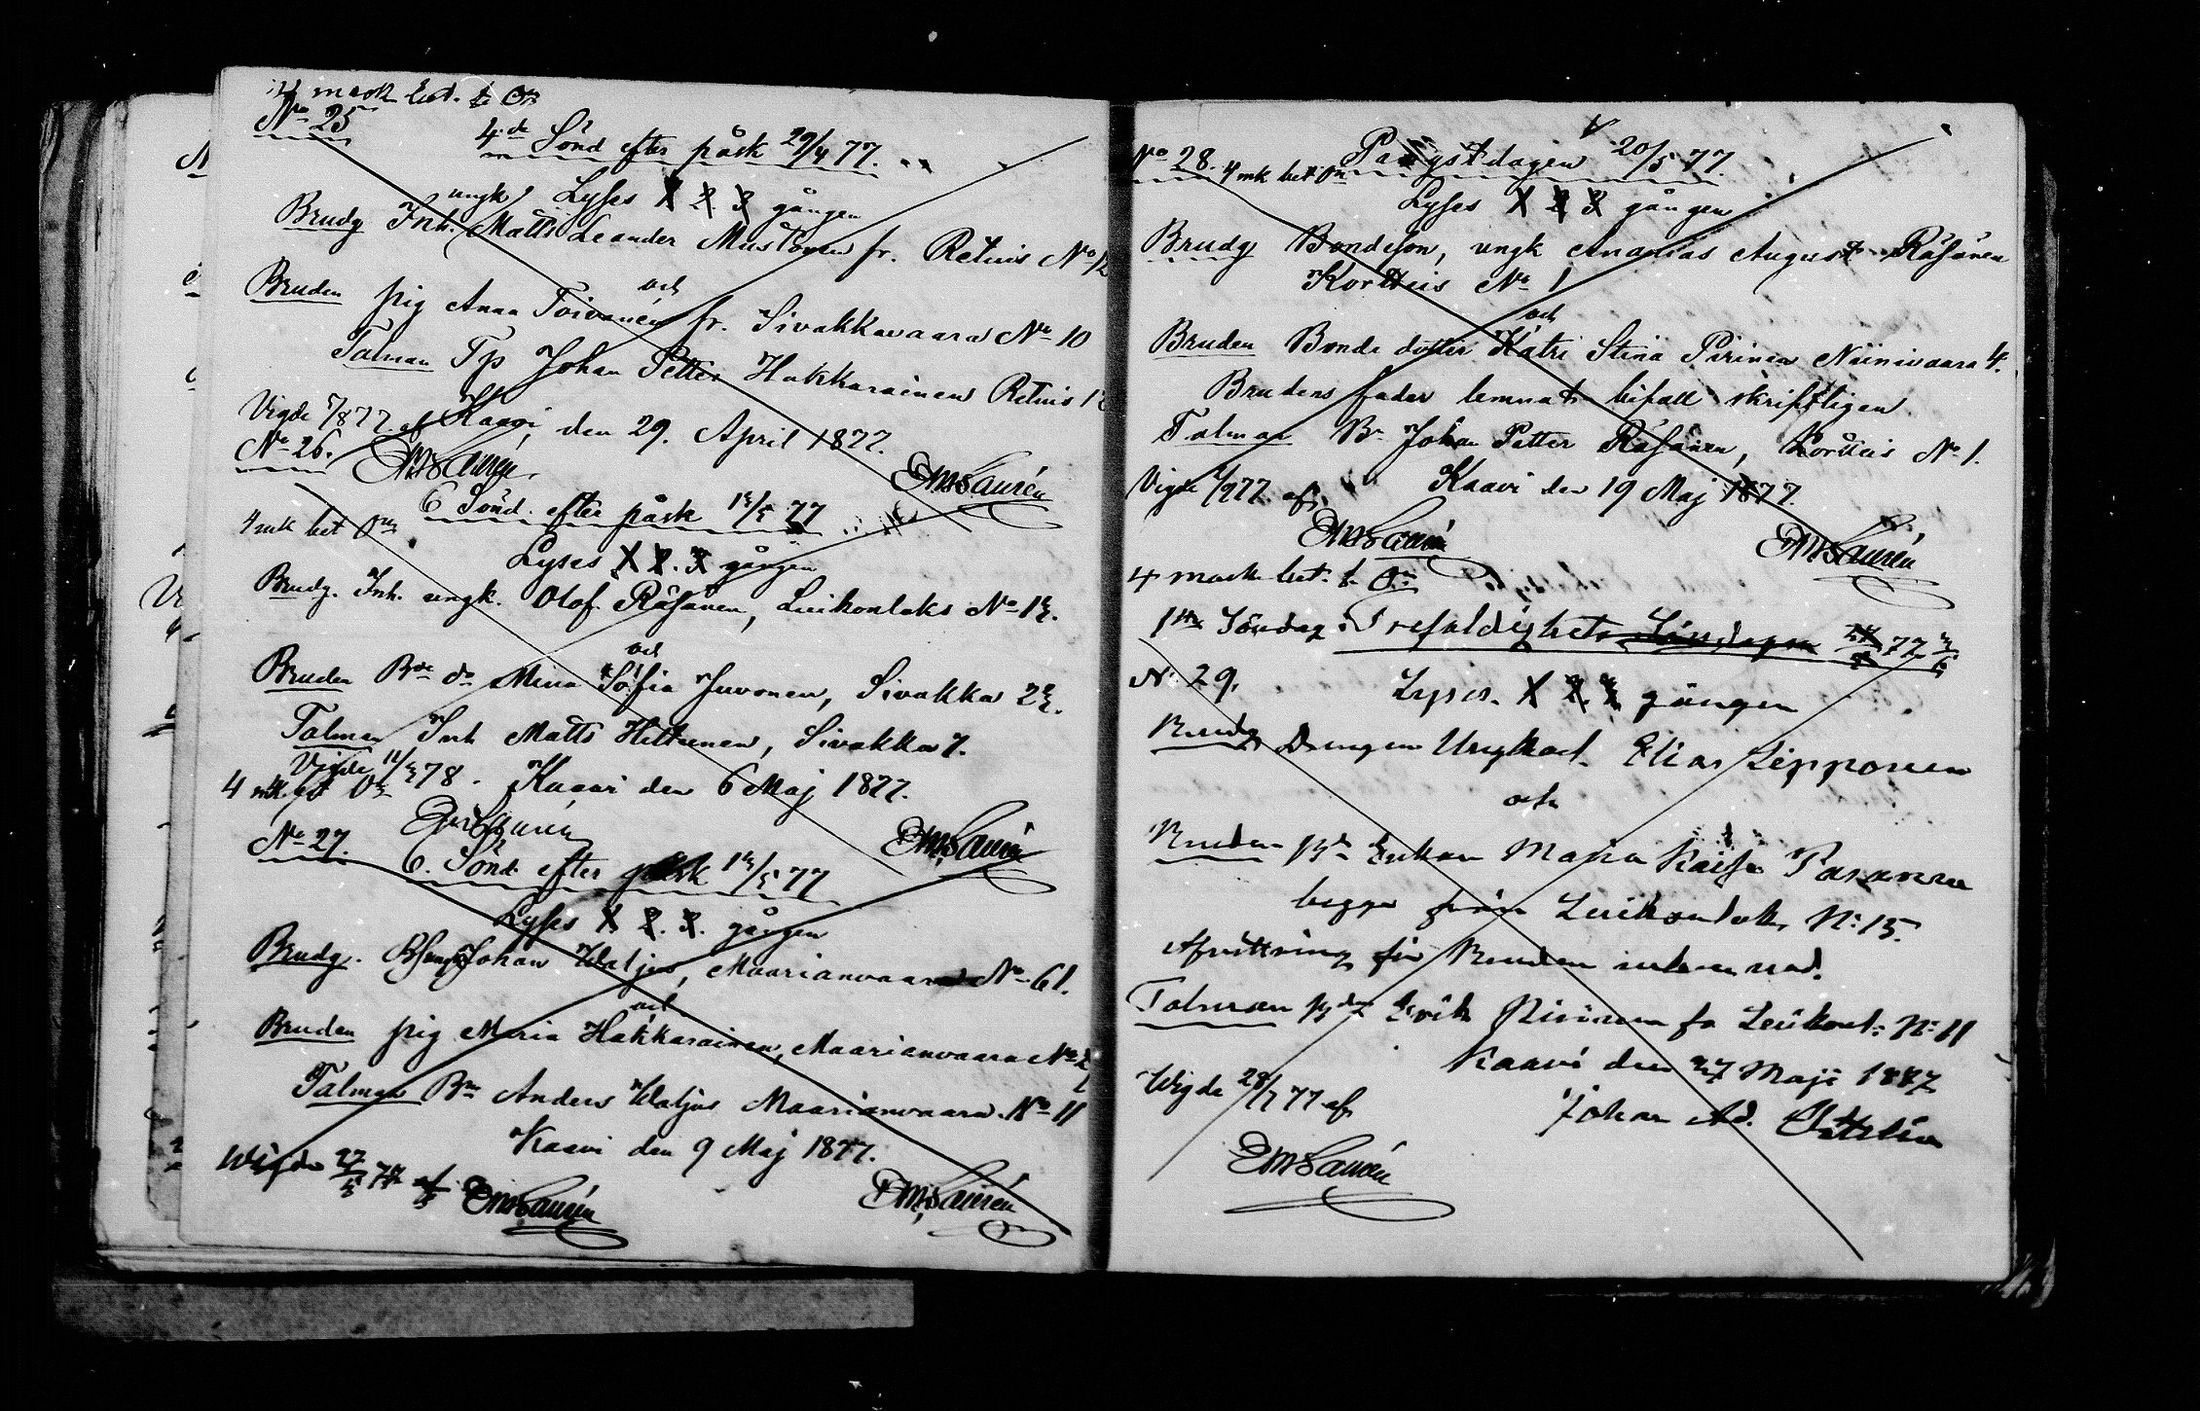 4 mark bet. t. Or
No 25
4de Sönd efter påsk 29/4 77.
Lyses 1 2 3 gången
Brudg Inh. ungk Matts Leander Mustonen fr. Retuis No 12
och
Bruden pig Anna Toivanen fr. Sivakkavaara No 10
Talman Tp Johan Petter Hakkarainen Retuis 12
Vigde 7/8 77 af Kaavi den 29. April 1877.
EMLaurén
EMLaurén
No 26.
6 Sönd. efter påsk 13/5 77
4 mk bet Or
Lyses 1 2. 3 gången
Brudg. Inh. ungk. Olof Räsänen, Luikonlaks No 13.
och
Bruden Bde dr Mina Sofia Juvonen, Sivakka 23.
Talman Inh Matts Hiltunen, Sivakka 7.
Vigde 78. Kaavi den 6 Maj 1877.
EMLaurén
4 mk bet Or
EMLaurén
No 27.
6. Sönd efter påsk 13/5 77
Lyses 1 2. 3. gången
Brudg. Johan Watjus, Maarianvaara No 61.
och
Bruden pig Maria Hakkarainen, Maarianvaara No 21
Talman Bn Anders Watjus Maarianvaara No 11
Kaavi den 9 Maj 1877.
Wigde 27/5 77 af EMLaurén
EMLaurén
No 28. 4 mk bet Or Pangstdagen 20/5 77.
Lyses 1 2 3 gången
Brudg Bondeson, ungk Ananias August Räsänen
Korttis No 1
och
Bruden Bonde dotter Katri Stina Pirinen Niinivaara 4.
Brudens fader lemnat bifall skriftligen
Talman Bn Johan Petter Räsänen, Korttis No 1.
Kaavi den 19 Maj 1877.
Vigde 77 af
EMLaurén
EMLaurén
4 mark bet. t. Or
1sta Söndag. Trefaldighets Söndagen 77 3/6
N: 29.
Lyses. 1 2. 3 gången
Brudg Drengen Ungkarl. Elias Lipponen
och
Bruden Enkan Maria Kaisa Pasanen
begge från Luikonlaks N: 15.
Afvittring för Bruden inlemnad.
Talman Erik Niskanen fr Luikonl: N: 11
Kaavi den 27 Maji 1877
Johan Ad.
Wigde 28/7 77 af
EMLaurén